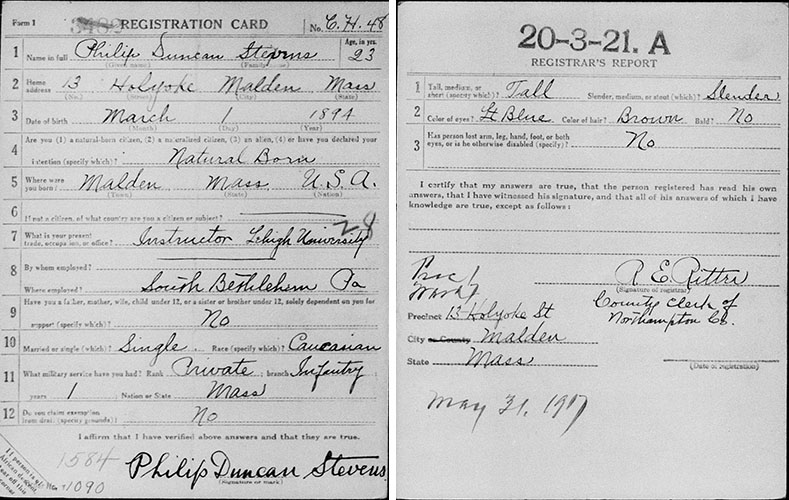 Form 1 3482 REGISTRATION CARD No. C.H. 48
1 Name in full Philip Duncan Stevens Age, in yrs. 23
(Given name) (Family name)
2 Home address 13 Holyoke Malden Mass
(No.) (Street) (City) (State)
3 Date of birth March 1 1894
(Month) (Day) (Year)
4 Are you (1) a natural-born citizen, (2) a naturalized citizen, (3) an alien, (4) or have you declared your
intention (specify which)? Natural Born
5 Where were you born? Malden Mass U.S.A.
(Town) (State) (Nation)
6 If not a citizen, of what country are you a citizen or subject?
28
7 What is your present trade, occupation, or office? Instructor Lehigh University
8 By whom employed?
Where employed? South Bethlehem Pa
9 Have you a father, mother, wife, child under 12, or a sister or brother under 12, solely dependent on you for
support (specify which)? No
10 Married or single (which)? Single Race (specify which)? Caucasian
11 What military service have you had? Rank Private branch Infantry
years 1 Nation or State Mass
12 Do you claim exemption from draft (specify grounds)? No
I affirm that I have verified above answers and that they are true.
1584
1090
Philip Duncan Stevens
(Signature or mark)
If person is of African descent, tear off this corner
20-3-21. A
REGISTRAR'S REPORT
1 Tall, medium, or short (specify which)? Tall Slender, medium, or stout (which)? Slender
2 Color of eyes? Lt Blue Color of hair? Brown Bald? No
3 Has person lost arm, leg, hand, foot, or both eyes, or is he otherwise disabled (specify)? No
I certify that my answers are true, that the person registered has read his own
answers, that I have witnessed his signature, and that all of his answers of which I have
knowledge are true, except as follows:
Prec 1
Ward 7
R E. Ritter
(Signature of registrar)
Precinct 13 Holyoke St County Clerk of
Northampton Co.
City or County Malden
State Mass
(Date of registration)
May 31, 1917